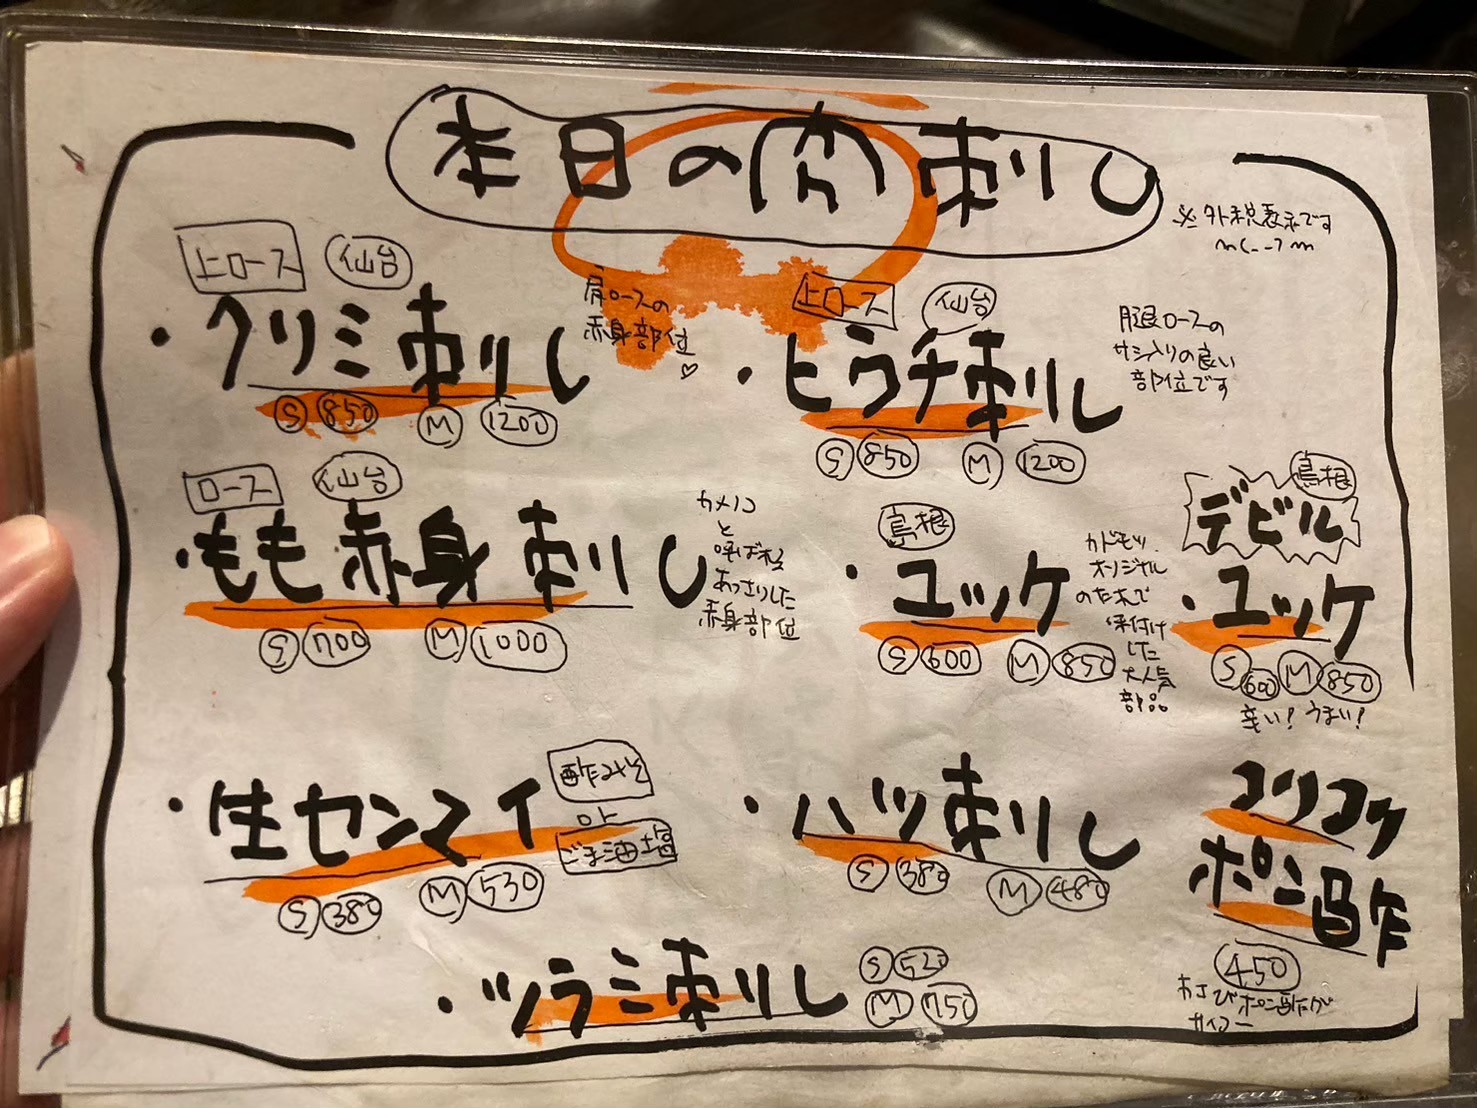 本日の肉刺し
※外税表示です
m(_ _)m
上ロース 仙台
・クリミ刺し
S 850 M 1200
肩ロースの
赤身部位♡
上ロース 仙台
・ヒウチ刺し
S 850 M 1200
腿ロースの
サシ入りの良い
部位です
ロース 仙台
・もも赤身刺し
S 700 M 1000
カメノコ
と
呼ばれる
あっさりした
赤身部位
島根
・ユッケ
S 600 M 850
カドモツ
オリジナル
のたれで
味付け
した
大人気
部品
デビル 島根
・ユッケ
S 600 M 850
辛い!うまい!
・生センマイ
S 380 M 530
酢みそ
or
ごま油塩
・ハツ刺し
S 380 M 480
コリコリ
ポン酢
450
わさびポン酢が
サイコー
・ツラミ刺し
S 520
M 750